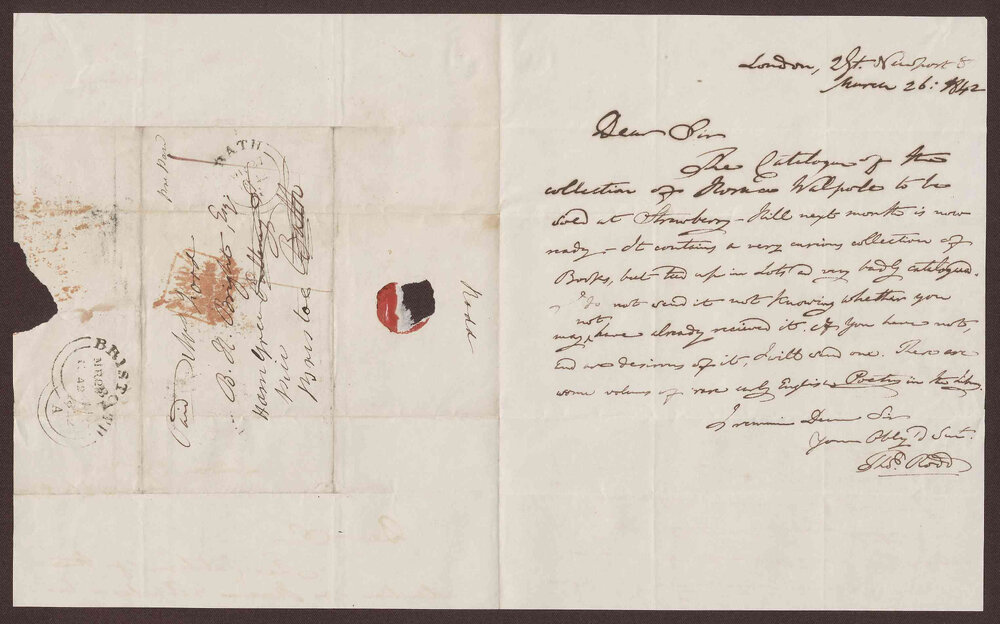 London, 2 Gt. Newport S
March 26: 1842
Dear Sir
The Catalogue of the
collection of Horace Walpole to be
sold at Strawberry-Hill next month is now
ready – It contains a very curious collection of
Books, but tied up in Lots & very badly catalogued.
I do not send it not knowing whether you
may not have already recieved it if you have not,
and are desirous of it, I will send one. There are
some volums of rare early English Poetry in the
I remain Dear Sir
Your Obly'd Svt.
Thos. Rodd
Rodd
Paid
B. H. Bright Esqr
Ham Green
near
Bristol
Bath
BATH
BRISTOL